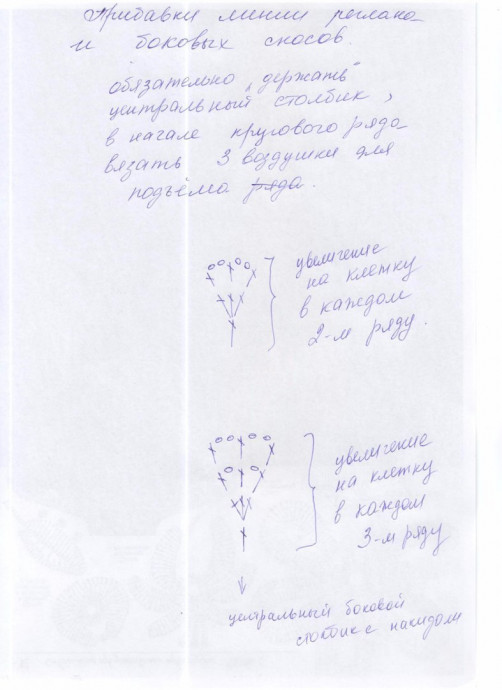 Прибавки линии реглана
и боковых скосов.
обязательно „держать"
центральный столбик,
в начале кругового ряда
вязать 3 воздушки для
подъёма ряда.
увеличение
на клетку
в каждом
2-м ряду.
увеличение
на клетку
в каждом
3-м ряду
центральный боковой
столбик с накидом